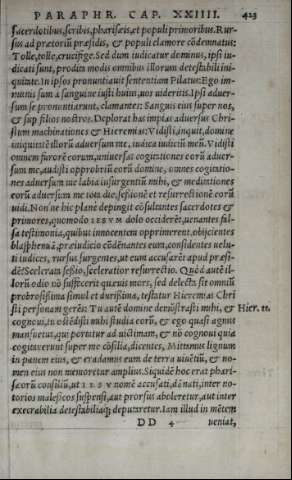 PARAPHR. CAP. XXIIII. 423
sacerdotibus, scribis, pharisæis, et populi primoribus. Rur-
sus ad prætoriũ præsidis, & populi clamore cõdemnatus:
Tolle, tolle, crucifige. Sed dum iudicatur dominus, ipsi iu-
dicati sunt, prodita modis omnibus illorum detestabili ini-
quitate. In ipsos pronuntiauit sententiam Pilatus: Ego im-
munis sum a sanguine iusti huius, uos uideritis. Ipsi aduer-
sum se pronuntiarunt, clamantes: Sanguis eius super nos,
& sup filios nostros. Deplorat has impias aduersus Chri-
stum machinationes & Hieremias: Vidisti, inquit, domine
iniquitatẽ illorũ aduersum me, iudica iudiciũ meũ. Vidisti
omnem furorẽ eorum, uniuersas cogitationes eorũ aduer-
sum me, audisti opprobriũ eorũ domine, omnes cogitatio-
nes aduersum me labia insurgentiũ mihi, & meditationes
eorũ aduersum me tota die, sessionẽ et resurrectionẽ eorũ
uidi. Non ne hic planè depingit cõsultantes sacerdotes &
primores, quomodo IESVM dolo occiderẽt, uenantes fal-
sa testimonia, quibus innocentem opprimerent, obijcientes
blasphemiã, præiudicio cõdẽnantes eum, considentes uelu-
ti iudices, rursus surgentes, ut eum accusarẽt apud præsi-
dẽ? Scelerata sessio, sceleratior resurrectio. Quòd autẽ il-
lorũ odio nõ suffecerit quæuis mors, sed delecta sit omniũ
probrosissima simul et durissima, testatur Hieremias Chri
sti personam gerẽs: Tu autẽ domine demõstrasti mihi, & Hier. 11.
cognoui, tu ostẽdisti mihi studia eorũ, & ego quasi agnus
mansuetus, qui portatur ad uictimam, & nõ cognoui quia
cogitauerunt super me cõsilia, dicentes, Mittamus lignum
in panem eius, & eradamus eum de terra uiuẽtiũ, & no-
men eius non memoretur amplius. Siquidẽ hoc erat phari-
sæorũ consiliũ, ut IESV nomẽ accusati, dãnati, inter no-
torios maleficos suspensi, aut prorsus aboleretur, aut inter
execrabilia detestabiliaq; deputaretur. Iam illud in mẽtem
DD 4 ueniat,